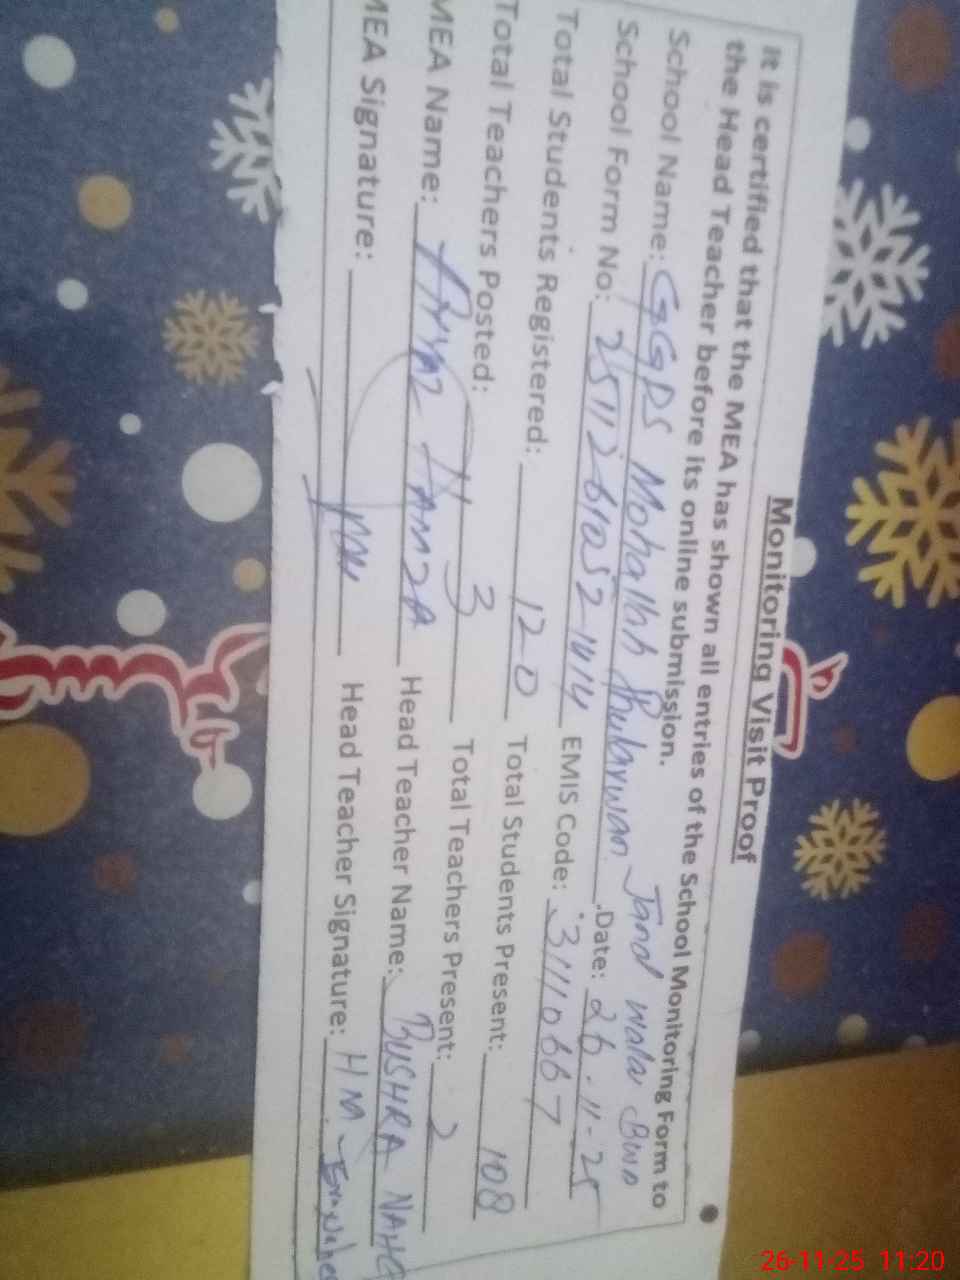 Monitoring Visit Proof
It is certified that the MEA has shown all entries of the School Monitoring Form to
the Head Teacher before its online submission.
School Name: GGPS Mohallah Jand wala BWP
School Form No: 25112610521414 Date: 26.11-25
Total Students Registered: 120 EMIS Code: 31110667
Total Teachers Posted: 3 Total Students Present: 108
MEA Name: HAMZA Total Teachers Present: 2
MEA Signature: Head Teacher Name: BUSHRA
Head Teacher Signature: HM
26-11-25 11:20